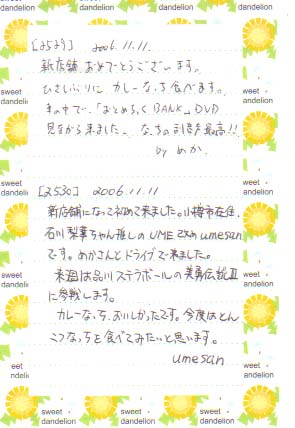 [2529] 2006.11.11.
新店舗おめでとうございます。
ひさしぶりに カレーなっち食べます。
車の中で「おとめちっくBANK」DVD
見ながら来ました。なっちの
最高!!
by めか.
[2530] 2006.11.11
新店舗になって初めて来ました。小樽市在住、
石川梨華ちゃん推しのUME改めumesan
です。めかさんとドライブで来ました。
来週は品川ステラボールの美勇伝説III
に参戦します。
カレーなっち、おいしかったです。今度はとん
こつなっちを食べてみたいと思います。
umesan
sweet
dandelion